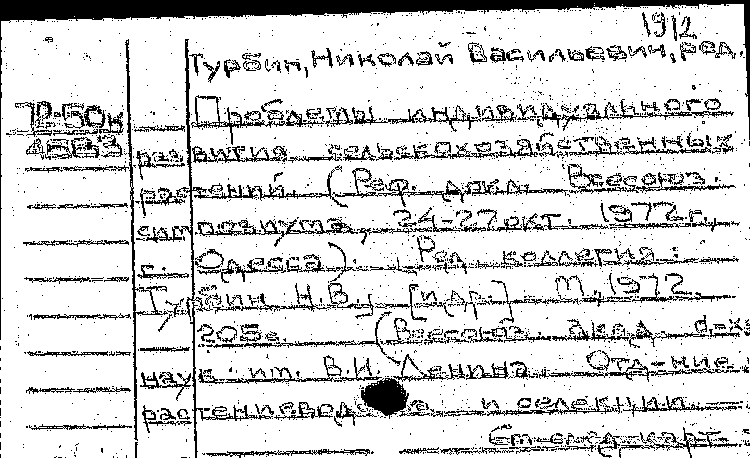 1912
Турбин, Николай Васильевич, ред.
Проблемы индивидуального
развития сельскохозяйственных
растений. (Реф. докл. Всесоюз.
симпозиума, 24-27 окт. 1972 г.,
г. Одесса). [Ред коллегия:
Турбин Н.В., [и др.] М., 1972.
205с. (Всесоюз. акад. с.-х
наук им. В.И. Ленина. Отд-ние
растениеводства и селекции.
См. след. карт.